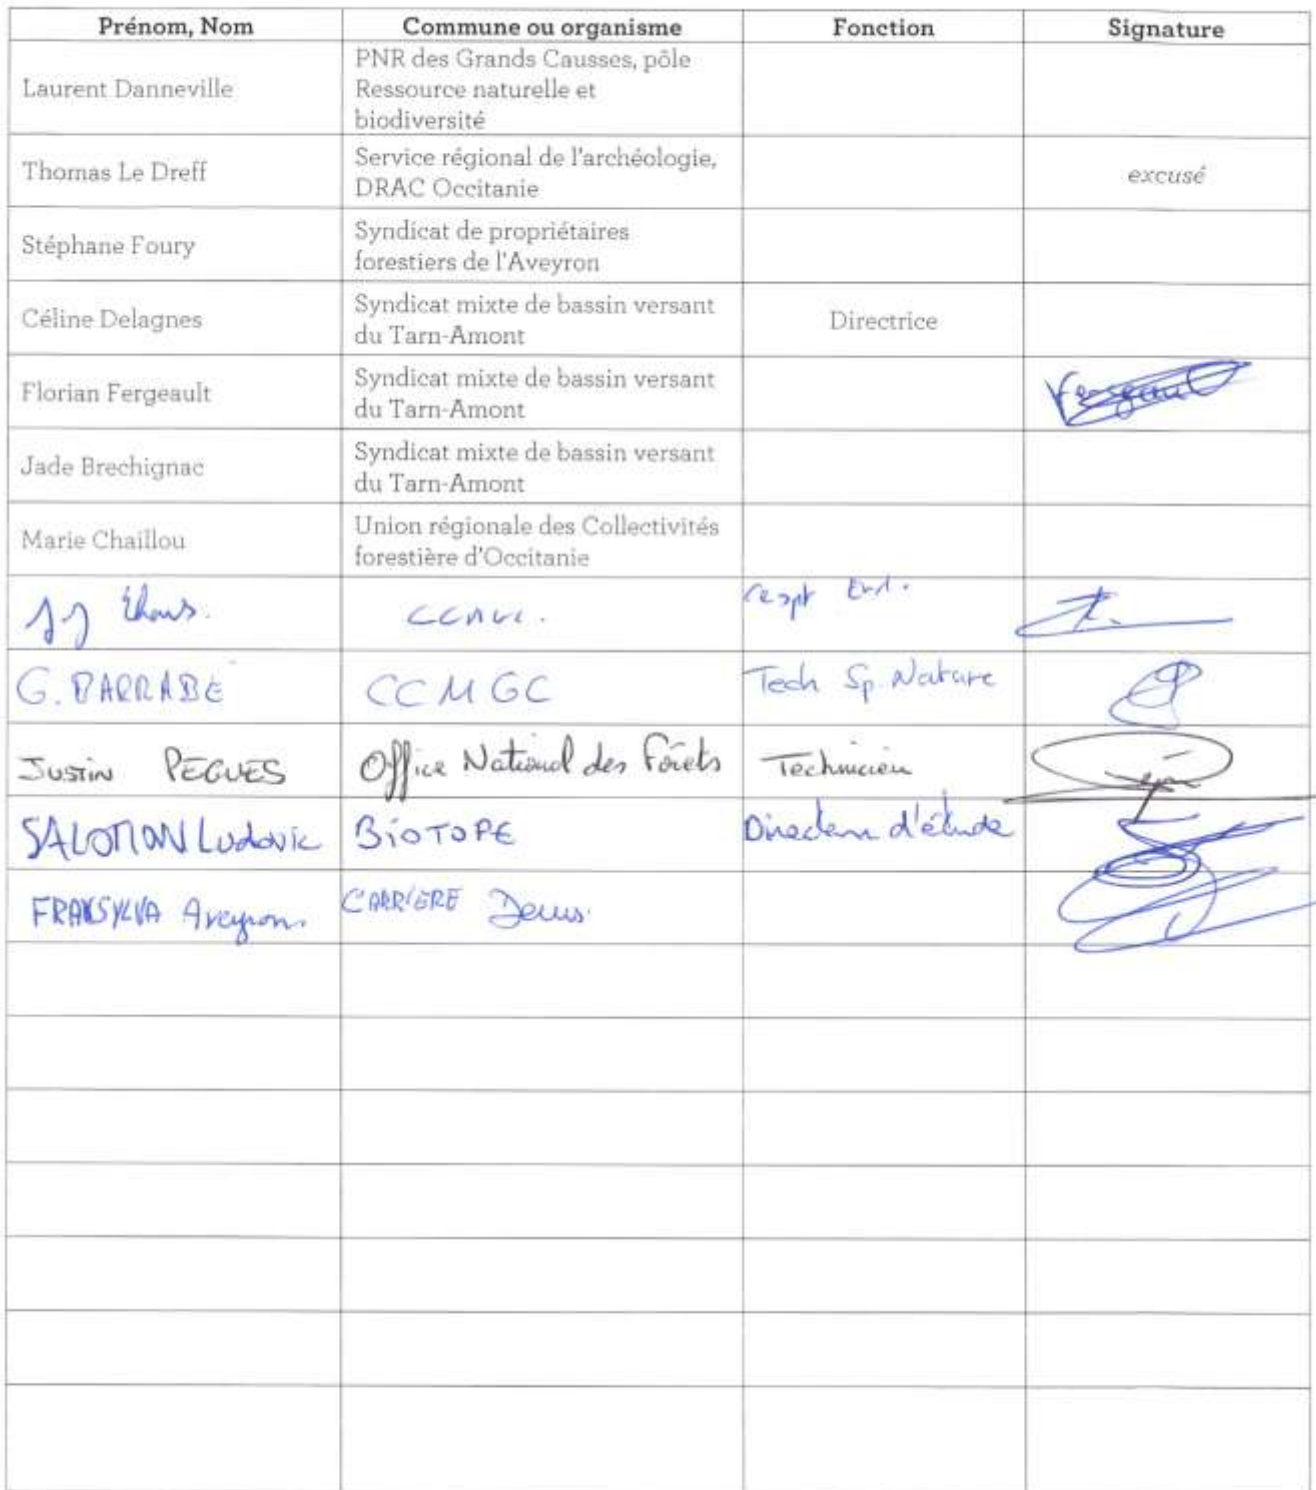 Prénom, Nom Commune ou organisme Fonction Signature
Laurent Danneville
PNR des Grands Causses, pôle
Ressource naturelle et
biodiversité
Thomas Le Dreff
Service régional de l'archéologie,
DRAC Occitanie
excusé
Stéphane Foury
Syndicat de propriétaires
forestiers de l'Aveyron
Céline Delagnes
Syndicat mixte de bassin versant
du Tarn-Amont
Directrice
Florian Fergeault
Syndicat mixte de bassin versant
du Tarn-Amont
Jade Brechignac
Syndicat mixte de bassin versant
du Tarn-Amont
Marie Chaillou
Union régionale des Collectivités
forestière d'Occitanie
G. BARRABÉ CCMGC Tech Sp. Nature
JUSTIN PEGUES Office National des Forêts Technicien
Ludovic BIOTOPE Directeur d'étude
FRANSYLVA Aveyron CARRIERE Denis